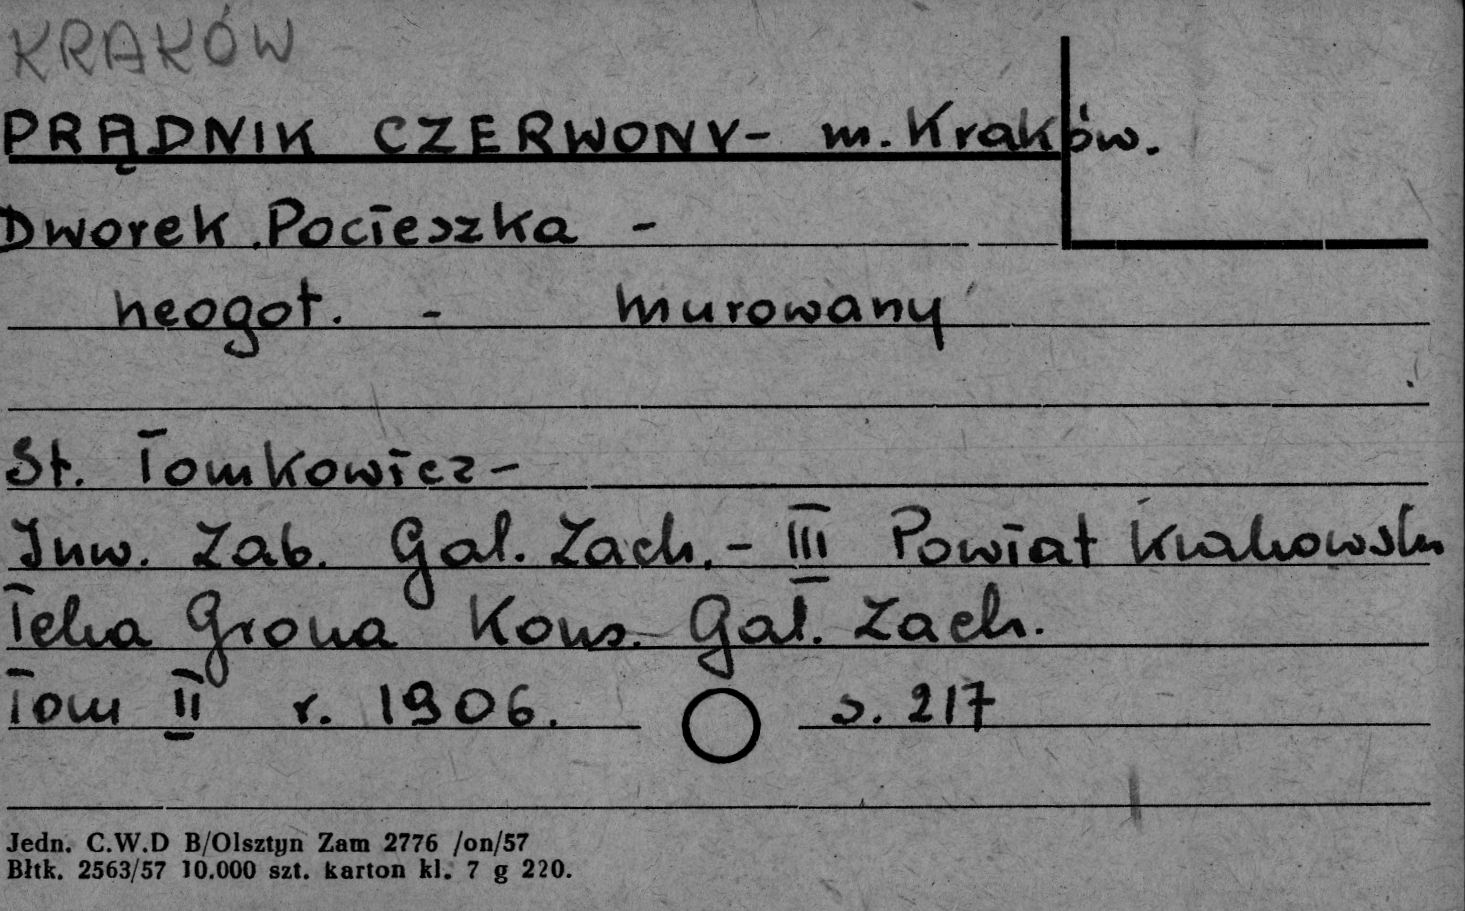 KRAKÓW
PRĄDNIK CZERWONY- m. Kraków.
Dworek Pocieszka -
neogot. - murowany
St. Tomkowicz-
Inw. Zab. Gal. Zach. - III Powiat Krakowski
Teka Grona Kons. Gal. Zach.
Tom II r. 1906. s. 217
Jedn. C.W.D B/Olsztyn Zam 2776 /on/57
Błtk. 2563/57 10.000 szt. karton kl. 7 g 220.